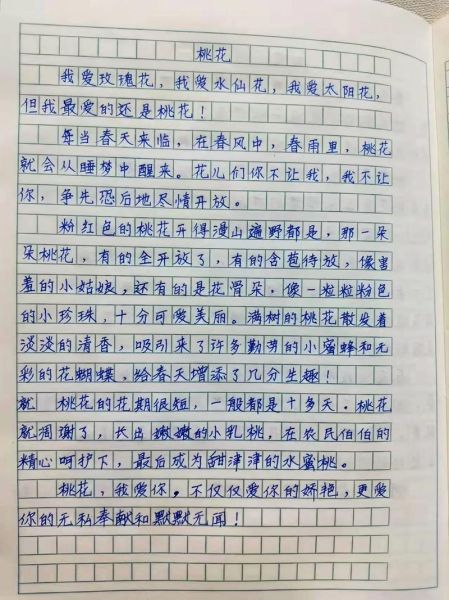 桃花
我爱玫瑰花，我爱水仙花，我爱太阳花，
但我最爱的还是桃花！
每当春天来临，在春风中，春雨里，桃花
就会从睡梦中醒来。花儿们你不让我，我不让
你，争先恐后地尽情开放。
粉红色的桃花开得漫山遍野都是，那一朵
朵桃花，有的全开放了，有的含苞待放，像害
羞的小姑娘，还有的是花骨朵，像一粒粒粉色
的小珍珠，十分可爱美丽。满树的桃花散发着
淡淡的清香，吸引来了许多勤劳的小蜜蜂和无
彩的花蝴蝶，给春天增添了几分生趣！
就 桃花的花期很短，一般都是十多天。桃花
就凋谢了，长出嫩嫩的小乳桃，在农民伯伯的
精心呵护下，最后成为甜津津的水蜜桃。
桃花，我爱你。不仅仅爱你的娇艳，更爱
你的无私奉献和默默无闻！